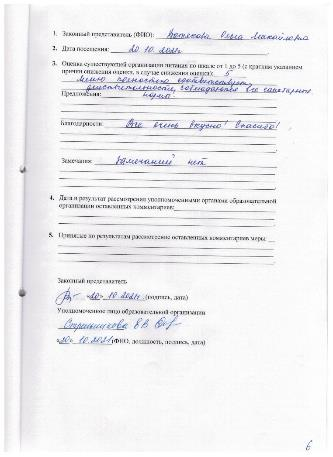 1. Законный представитель (ФИО): Ольга Михайловна
2. Дата посещения: 20.10.2021г
3. Оценка существующей организации питания по шкале от 1 до 5 (с кратким указанием
причин снижения оценки, в случае снижения оценки): 5
Меню полностью соответствует
действительности, соблюдаются все санитарные
Предложения: нормы.
Благодарности: Все очень вкусно! Спасибо!
Замечания: Замечаний нет
4. Дата и результат рассмотрения уполномоченными органами образовательной
организации оставленных комментариев:
5. Принятые по результатам рассмотрение оставленных комментариев меры:
Законный представитель
«20» 10.2021г. (подпись, дата)
Уполномоченное лицо образовательной организации
В В
«20» 10.2021 (ФИО, должность, подпись, дата)
6